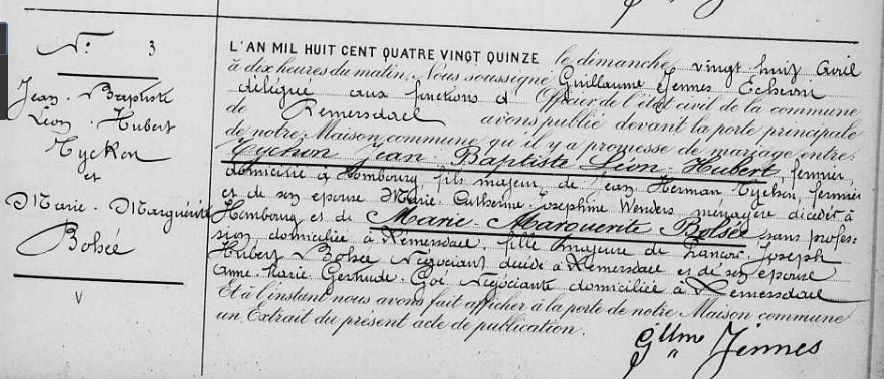 N.° 3
Jean-Baptiste
Léon-Hubert
Tychon
et
Marie-Marguerite
Bolsée
V
L'AN MIL HUIT CENT QUATRE VINGT QUINZE le dimanche vingt huit avril
à dix heures du matin, Nous soussigné Guillaume Jennes Echevin
délégué aux fonctions d'Officier de l'état civil de la commune
de Remersdael avons publié devant la porte principale
de notre Maison commune qu'il y a promesse de mariage entre:
Tychon Jean Baptiste Léon Hubert, fermier
domicilié à Hombourg, fils majeur de Jean Herman Tychon, fermier
et de son épouse Marie-Catherine-Josephine Wenders ménagère décédée à
Hombourg et de Marie Marguerite Bolsée sans profes-
sion domiciliée à Remersdael, fille majeure de François-Joseph
Hubert Bolsée Négociant décédé à Remersdael et de son épouse
Anne-Marie Gertrude Goé Négociante domiciliée à Remersdael
Et à l'instant nous avons fait afficher à la porte de notre Maison commune
un Extrait du présent acte de publication.
Gllme Jennes